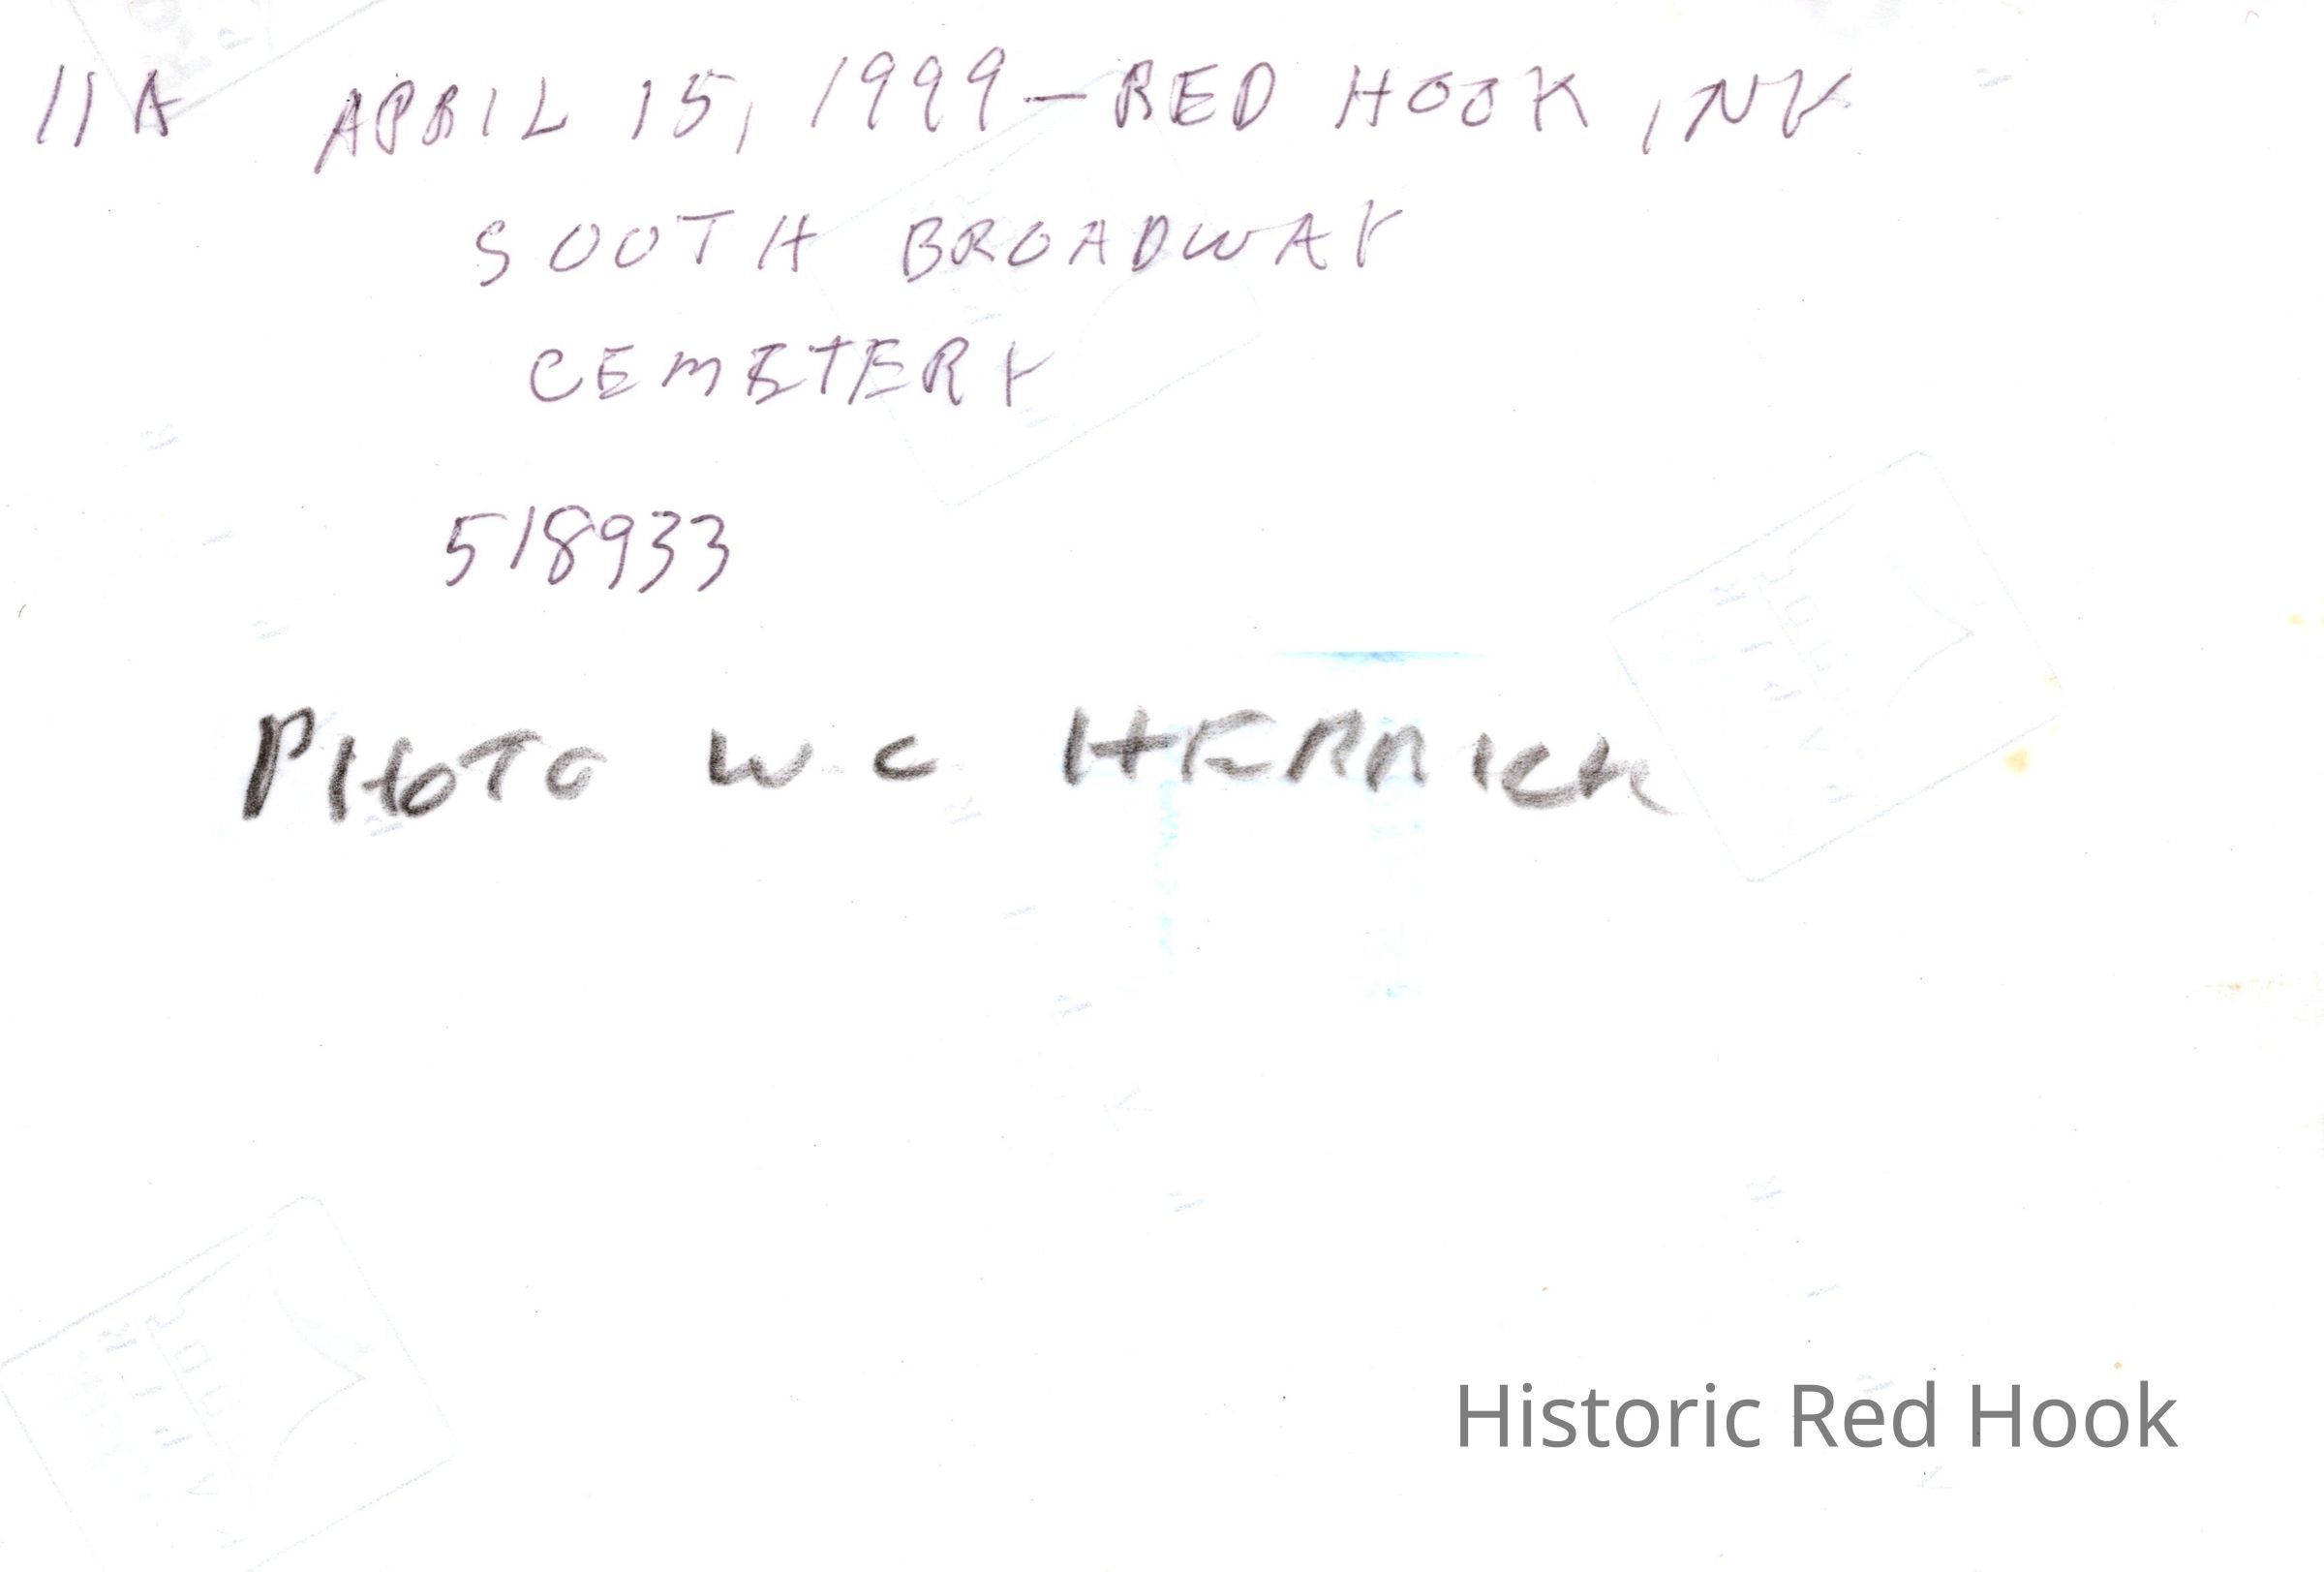 11A APRIL 15, 1999 - RED HOOK, NY
SOUTH BROADWAY
CEMETERY
518933
PHOTO W.C HERRICK
Historic Red Hook